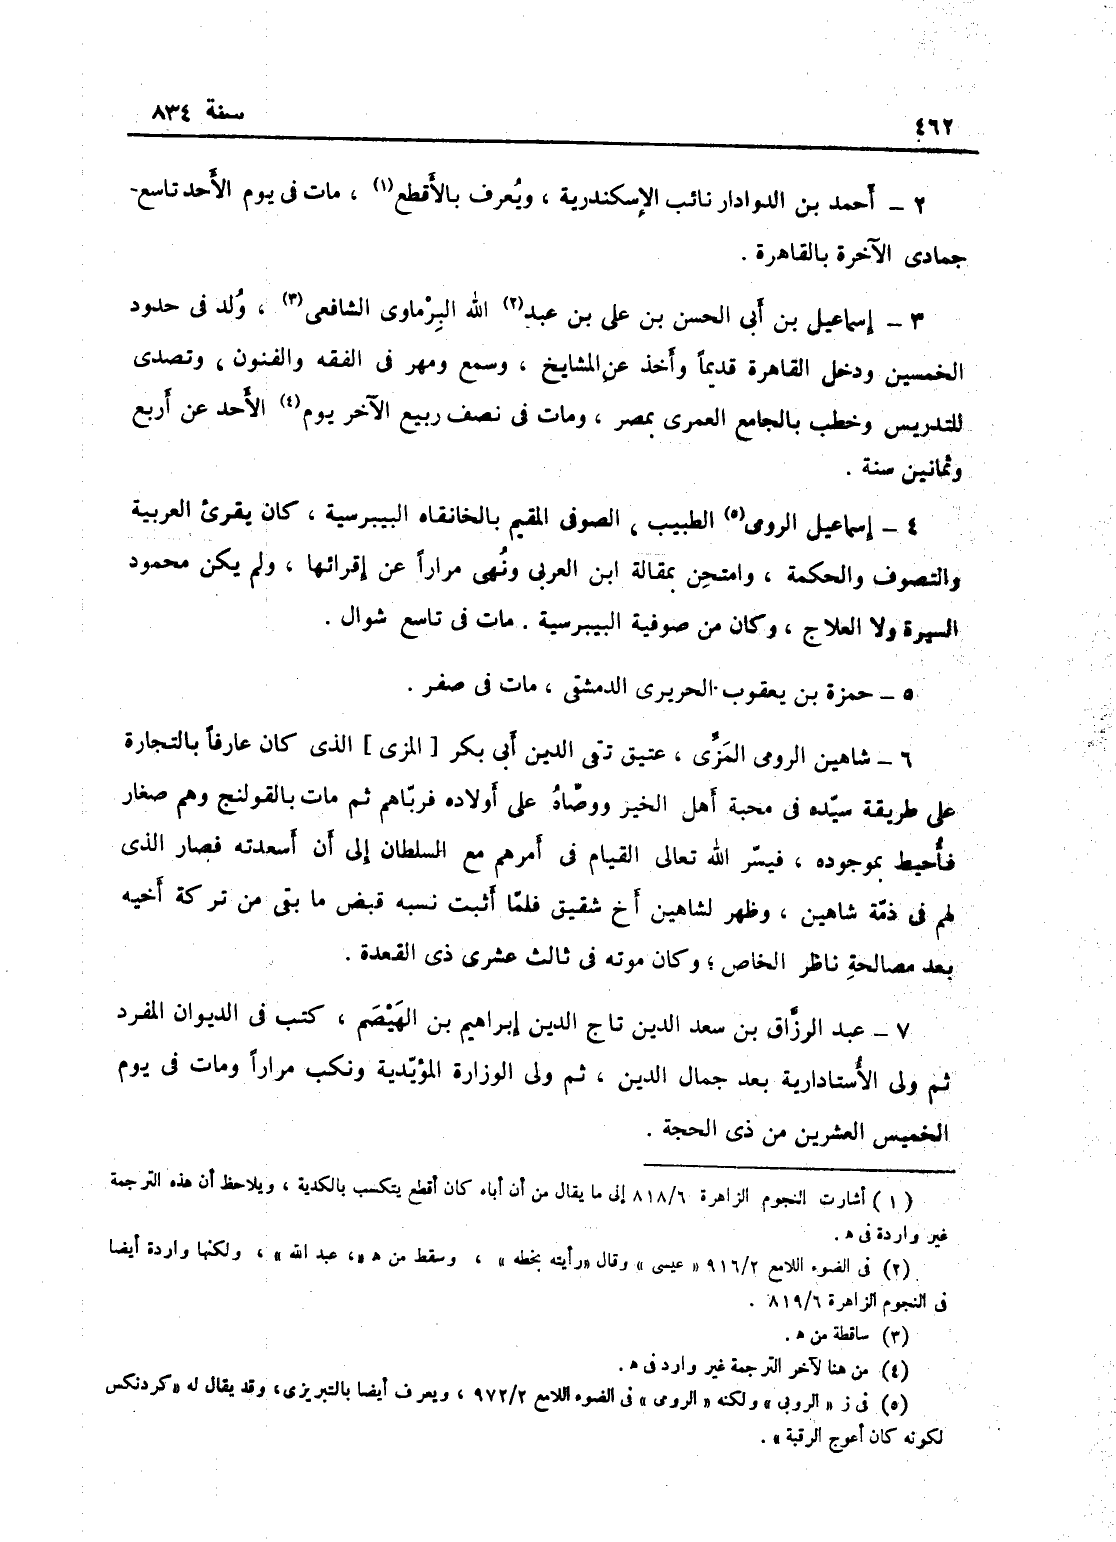 ٤٦٢
سنة ٨٣٤
٢ ــ أَحمد بن الدوادار نائب الإسكندرية ، ويُعرف بالأَقطع(١) ، مات فى يوم الأَحد تاسع-
جمادى الآخرة بالقاهرة .
٣ ــ إسماعيل بن أَبى الحسن بن على بن عبد(٢) الله البِرْماوى الشافعى(٣) ، وُلد فى حدود
الخمسين ودخل القاهرة قديماً وأَخذ عن المشايخ ، وسمع ومهر فى الفقه والفنون ، وتصدى
للتدريس وخطب بالجامع العمرى بمصر ، ومات فى نصف ربيع الآخر يوم(٤) الأَحد عن أَربع
وثمانين سنة .
٤ ــ إسماعيل الرومى(٥) الطبيب ، الصوفى المقيم بالخانقاه البيبرسية ، كان يقرئ العربية
والتصوف والحكمة ، وامتحِن بمقالة ابن العربى ونُهى مراراً عن إقرائها ، ولم يكن محمود
السيرة ولا العلاج ، وكان من صوفية البيبرسية . مات فى تاسع شوال .
٥ ــ حمزة بن يعقوب الحريرى الدمشقى ، مات فى صفر .
٦ ــ شاهين الرومى المَزِّى ، عتيق تقى الدين أَبى بكر [ المزى ] الذى كان عارفاً بالتجارة
على طريقة سيّده فى محبة أَهل الخير ووصّاهُ على أَولاده فربّاهم ثم مات بالقولنج وهم صغار
فأُحيط بموجوده ، فيسّر الله تعالى القيام فى أَمرهم مع السلطان إلى أَن أَسعدته فصار الذى
لهم فى ذمّة شاهين ، وظهر لشاهين أَخ شقيق فلمّا أَثبت نسبه قبض ما بقى من تركة أَخيه
بعد مصالحةِ ناظر الخاص ؛ وكان موته فى ثالث عشرى ذى القعدة .
٧ ــ عبد الرزَّاق بن سعد الدين تاج الدين إبراهيم بن الهَيْصَم ، كتب فى الديوان المفرد
ثم ولى الأُستادارية بعد جمال الدين ، ثم ولى الوزارة المؤيّدية ونكب مراراً ومات فى يوم
الخميس العشرين من ذى الحجة .
(١) أشارت النجوم الزاهرة ٨١٨/٦ إلى ما يقال من أن أباه كان أقطع يتكسب بالكدية ، ويلاحظ أن هذه الترجمة
غير واردة فى ﻫ .
(٢) فى الضوء اللامع ٩١٦/٢ « عيسى » وقال « رأيته بخطه » ، وسقط من ﻫ « ، عبد الله » ، ولكنها واردة أيضا
فى النجوم الزاهرة ٨١٩/٦ .
(٣) ساقطة من ﻫ .
(٤) من هنا لآخر الترجمة غير وارد فى ﻫ .
(٥) فى ز « الروبى » ولكنه « الرومى » فى الضوء اللامع ٩٧٢/٢ ، ويعرف أيضا بالتبريزى، وقد يقال له « كردنكس
لكونه كان أعوج الرقبة » .